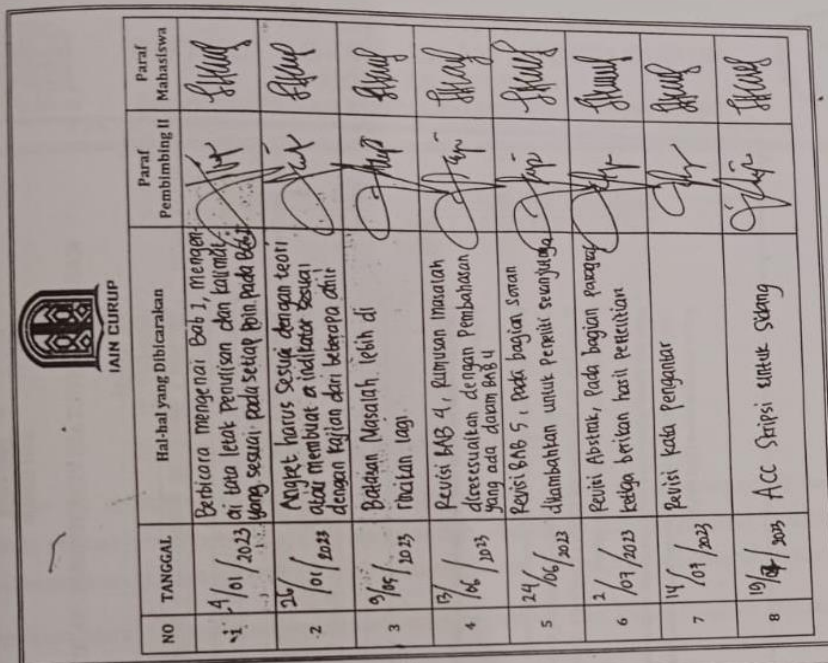 IAIN CURUP
NO TANGGAL Hal-hal yang Dibicarakan Paraf Pembimbing II Paraf Mahasiswa
1. 4/01/2023 Berbicara mengenai Bab 1, mengen-
ai tata letak penulisan dan kalimat
yang sesuai pada setiap Poin pada Bab I
2 26/01/2023 Angket harus sesuai dengan teori
atau membuat indikator sesuai
dengan kajian dari beberapa ahli
3 9/05/2023 Batasan Masalah lebih di
rincikan lagi.
4 13/06/2023 Revisi BAB 4, Rumusan masalah
disesesuaikan dengan Pembahasan
yang ada dalam BAB 4
5 24/06/2023 Revisi BAB 5, Pada bagian Saran
ditambahkan untuk Peneliti selanjutnya
6 2/07/2023 Revisi Abstrak, Pada bagian Paragraf
ketiga berikan hasil Penelitian
7 14/07/2023 Revisi Kata Pengantar
8 19/07/2023 Acc Skripsi untuk Sidang